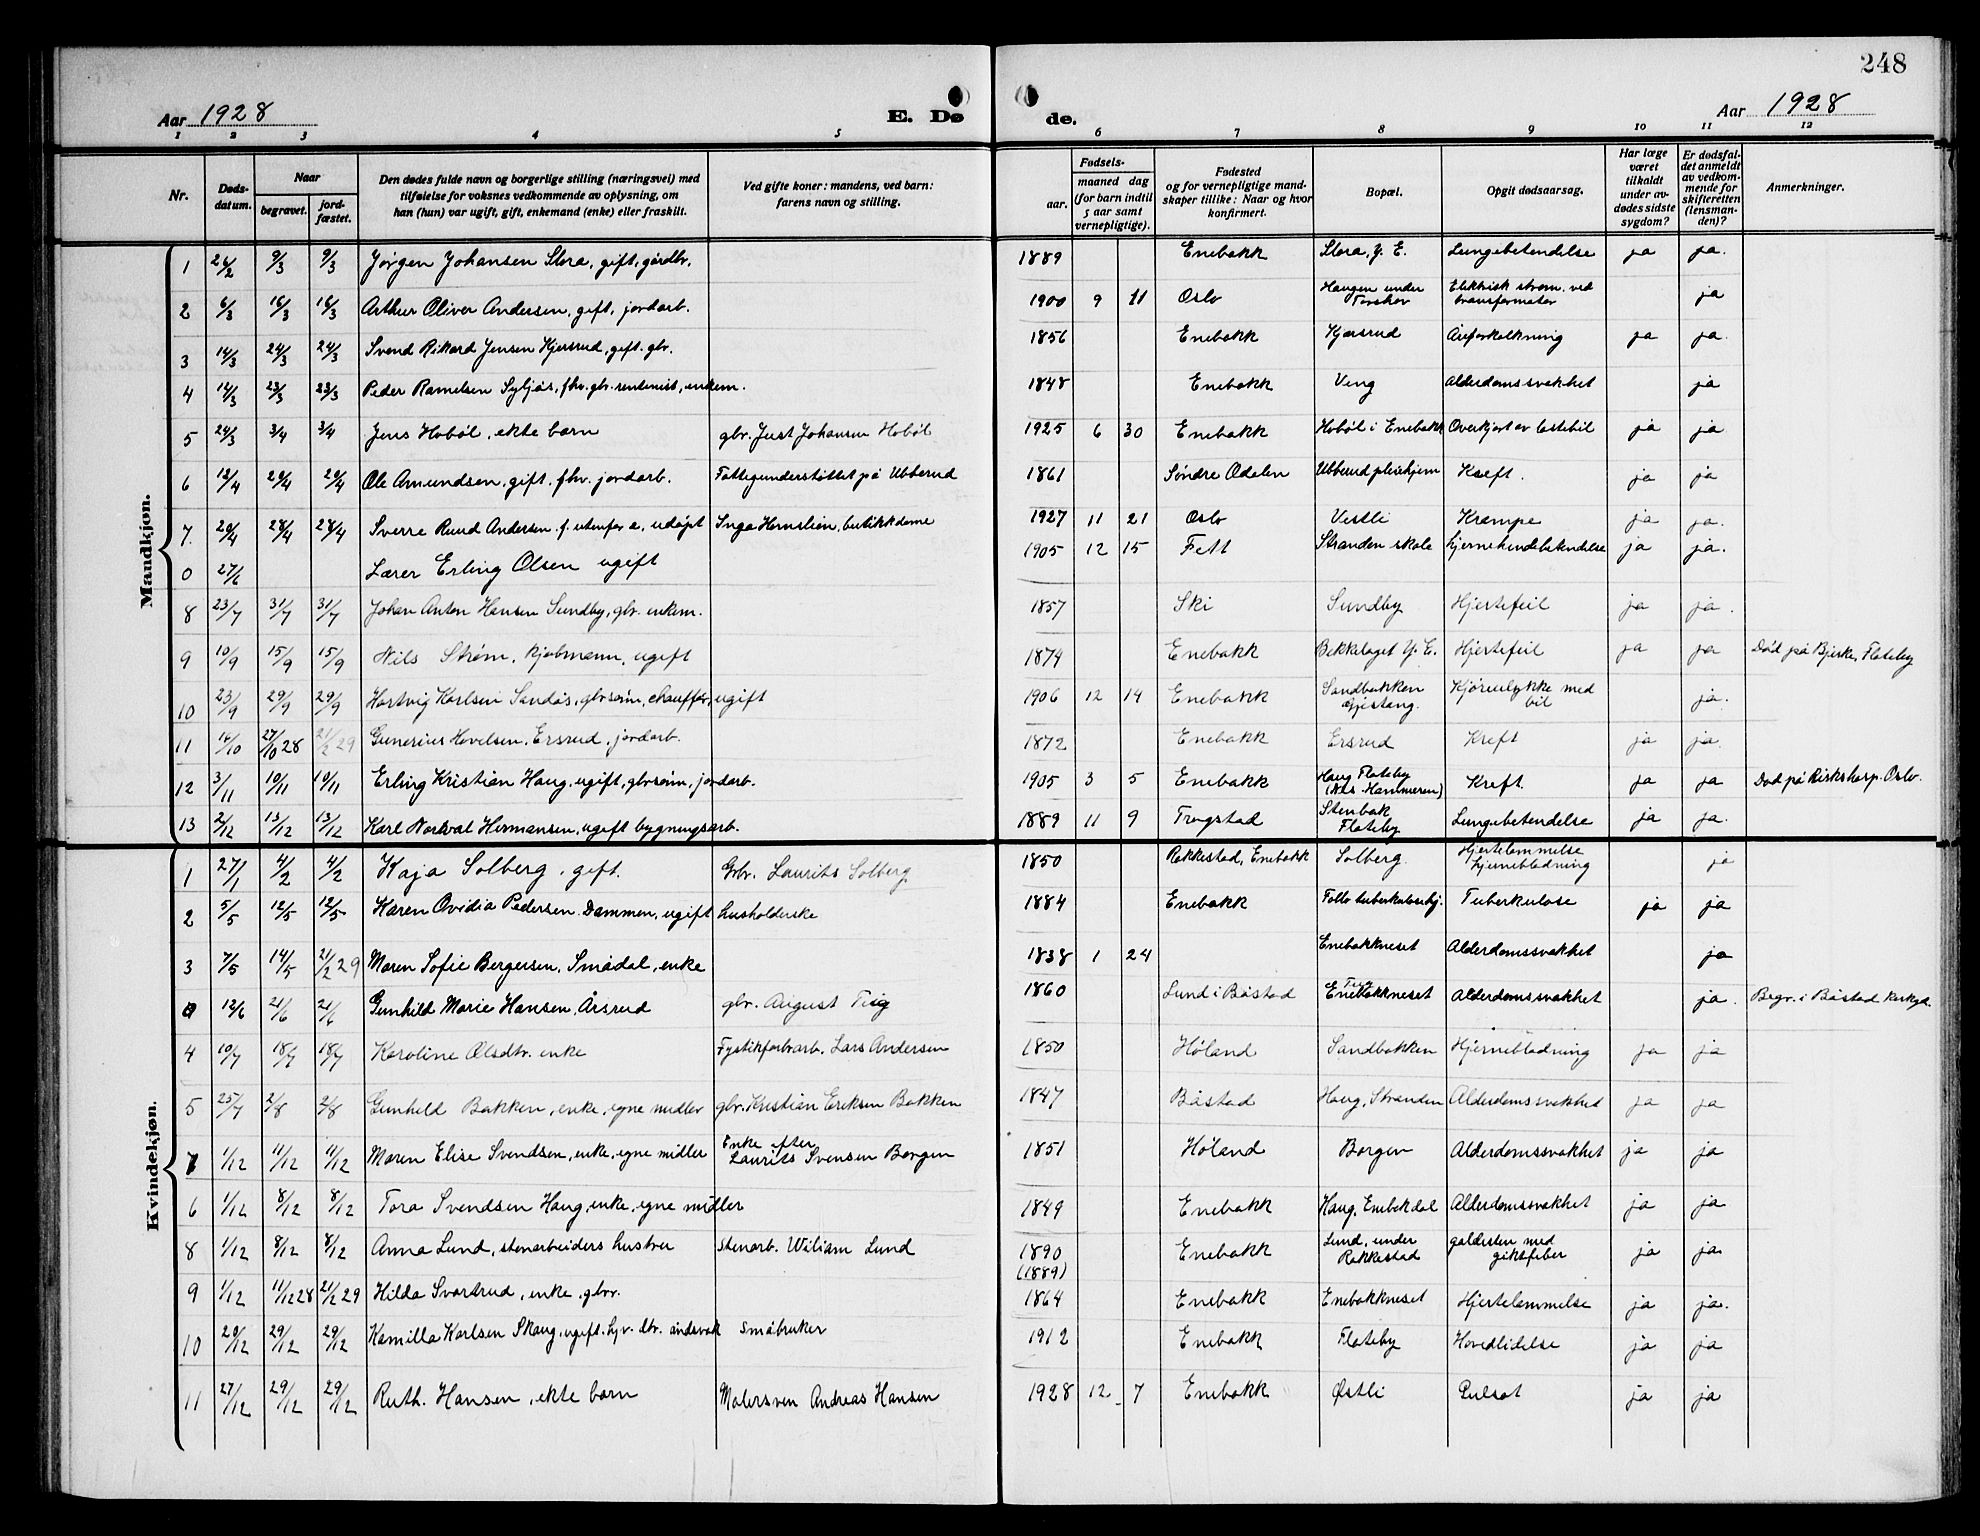 248
Aar 1928 E. Dø de. Aar 1928
1 2 3 4 5 6 7 8 9 10 11 12
Nr. Døds-datum. Naar begravet. jord-fæstet. Den dødes fulde navn og borgerlige stilling (næringsvei) med tilføielse for voksnes vedkommende av oplysning, om han (hun) var ugift, gift, enkemand (enke) eller fraskilt. Ved gifte koner: mandens, ved barn: farens navn og stilling. Fødsels- aar. maaned dag (for barn indtil 5 aar samt vernepligtige). Fødested og for vernepligtige mand-skaper tillike: Naar og hvor konfirmert. Bopæl. Opgit dødsaarsag. Har læge været tilkaldt under av-dødes sidste sygdom? Er dødsfal-det anmeldt av vedkom-mende for skifteretten (lensman-den)? Anmerkninger.
Mandkjøn.
1 26/2 9/3 9/3 Jørgen Johansen Stora, gift, gårdbr. 1889 Enebakk Stora, Y. E. Lungebetendelse ja ja.
2 6/3 16/3 16/3 Arthur Oliver Andersen, gift, jordarb. 1900 9 11 Oslo Haugen under Torshov Elektrisk strøm. ved transformator ja
3 14/3 24/3 24/3 Svend Rikard Jensen Hjersrud, gift. gbr. 1856 Enebakk Hjersrud Åreforkalkning ja ja.
4 14/3 23/3 23/3 Peder Ramelsen fhv. gbr. rentenist, enkem. 1848 Enebakk Veng Alderdomssvakhet ja
5 24/3 3/4 3/4 Jens Hobøl, ekte barn gbr. Just Johansen Hobøl 1925 6 30 Enebakk Hobøl i Enebakk Overkjørt av lastebil ja ja
6 12/4 20/4 20/4 Ole Amundsen, gift. fhv. jordarb. Fattigunderstøttet på Ubberud 1861 Søndre Odalen Ubberud pleiehjem Kræft. ja ja
7. 20/4 28/4 28/4 Sverre Ruud Andersen. f. utenfor e, udøpt Inga Hernslien, butikkdame 1927 11 21 Oslo Vestli Krampe ja ja.
0 27/6 Lærer Erling Olsen ugift 1905 12 15 Fett Stranden skole hjernehindebetendelse ja ja.
8 23/7 31/7 31/7 Johan Anton Hansen Sundby, gbr. enkem. 1857 Ski Sundby Hjertefeil ja ja.
9 10/9 15/9 15/9 Nils Strøm, kjøbmann, ugift 1874 Enebakk Bekkelaget Y. E. Hjertefeil ja ja Død på Bjerke, Flateby
10 23/9 29/9 29/9 Hartvig Karlsen Sandås, gbrsønn, chauffør, ugift 1906 12 14 Enebakk Sandbakken Gjestang. Kjøreulykke med bil ja.
11 14/10 27/10 28 21/2 29 Gunerius Hovelsen, Ersrud, jordarb. 1872 Enebakk Ersrud Kreft ja ja.
12 3/11 10/11 10/11 Erling Kristian Haug, ugift, gbrsønn, jordarb. 1905 3 5 Enebakk Haug Flateby Kreft. ja ja Død på Rikshosp. Oslo.
13 2/12 13/12 13/12 Karl Norkval Hermansen, ugift bygningsarb. 1889 11 9 Trøgstad Stenbak Flateby Lungebetendelse ja ja.
Kvindekjøn.
1 27/1 4/2 4/2 Kaja Solberg, gift. Gbr. Laurits Solberg. 1850 Rakkestad, Enebakk Solberg. Hjertelammelse hjerneblødning ja
2 5/5 12/5 12/5 Karen Ovidia Pedersen Dammen, ugift husholderske 1884 Enebakk Follo tuberkulosehj. Tuberkulose ja ja
3 7/5 14/5 21/2 29 Maren Sofie Bergersen, Smådal, enke 1838 1 24 Enebakkneset Alderdomssvakhet ja
0 12/6 21/6 21/6 Gunhild Marie Hansen, Årsrud gbr. August Tiig 1860 Lund i Båstad Enebakkneset Alderdomssvakhet ja. Begr. i Båstad kirkgd.
4 10/7 18/7 18/7 Karoline Olsdtr. enke Fyrstikfabrarb. Lars Andersen 1850 Høland Sandbakken Hjerneblødning ja ja
5 25/7 2/8 2/8 Gunhild Bakken, enke, egne midler gbr. Kristian Eriksen Bakken 1847 Båstad Haug, Stranden Alderdomssvakhet ja ja
7 1/12 11/12 11/12 Maren Elise Svendsen, enke, egne midler Enke efter Laurits Svensen Borgen 1851 Høland Borgen Alderdomssvakhet ja ja
6 1/12 8/12 8/12 Tora Svendsen Haug, enke, egne midler 1849 Enebakk Haug, Enebakdal Alderdomssvakhet ja ja
8 1/12 8/12 8/12 Anna Lund, stenarbeiders hustru stenarb. Wiliam Lund 1890 (1889) Enebakk Lund, under Rakkestad galdesten med giktfeber ja ja.
9 1/12 11/12 28 21/2 29 Hilda Svartrud, enke, gbr. 1864 Enebakk Enebakkneset Hjertelammelse ja ja.
10 20/12 29/12 29/12 Kamilla Karlsen Skaug, ugift. hjv. dtr. åndsvak småbruker 1912 Enebakk Flateby Hovedlidelse ja ja
11 27/12 29/12 29/12 Ruth. Hansen, ekte barn Malersven Andreas Hansen 1928 12 7 Enebakk Østli Pulsot ja ja